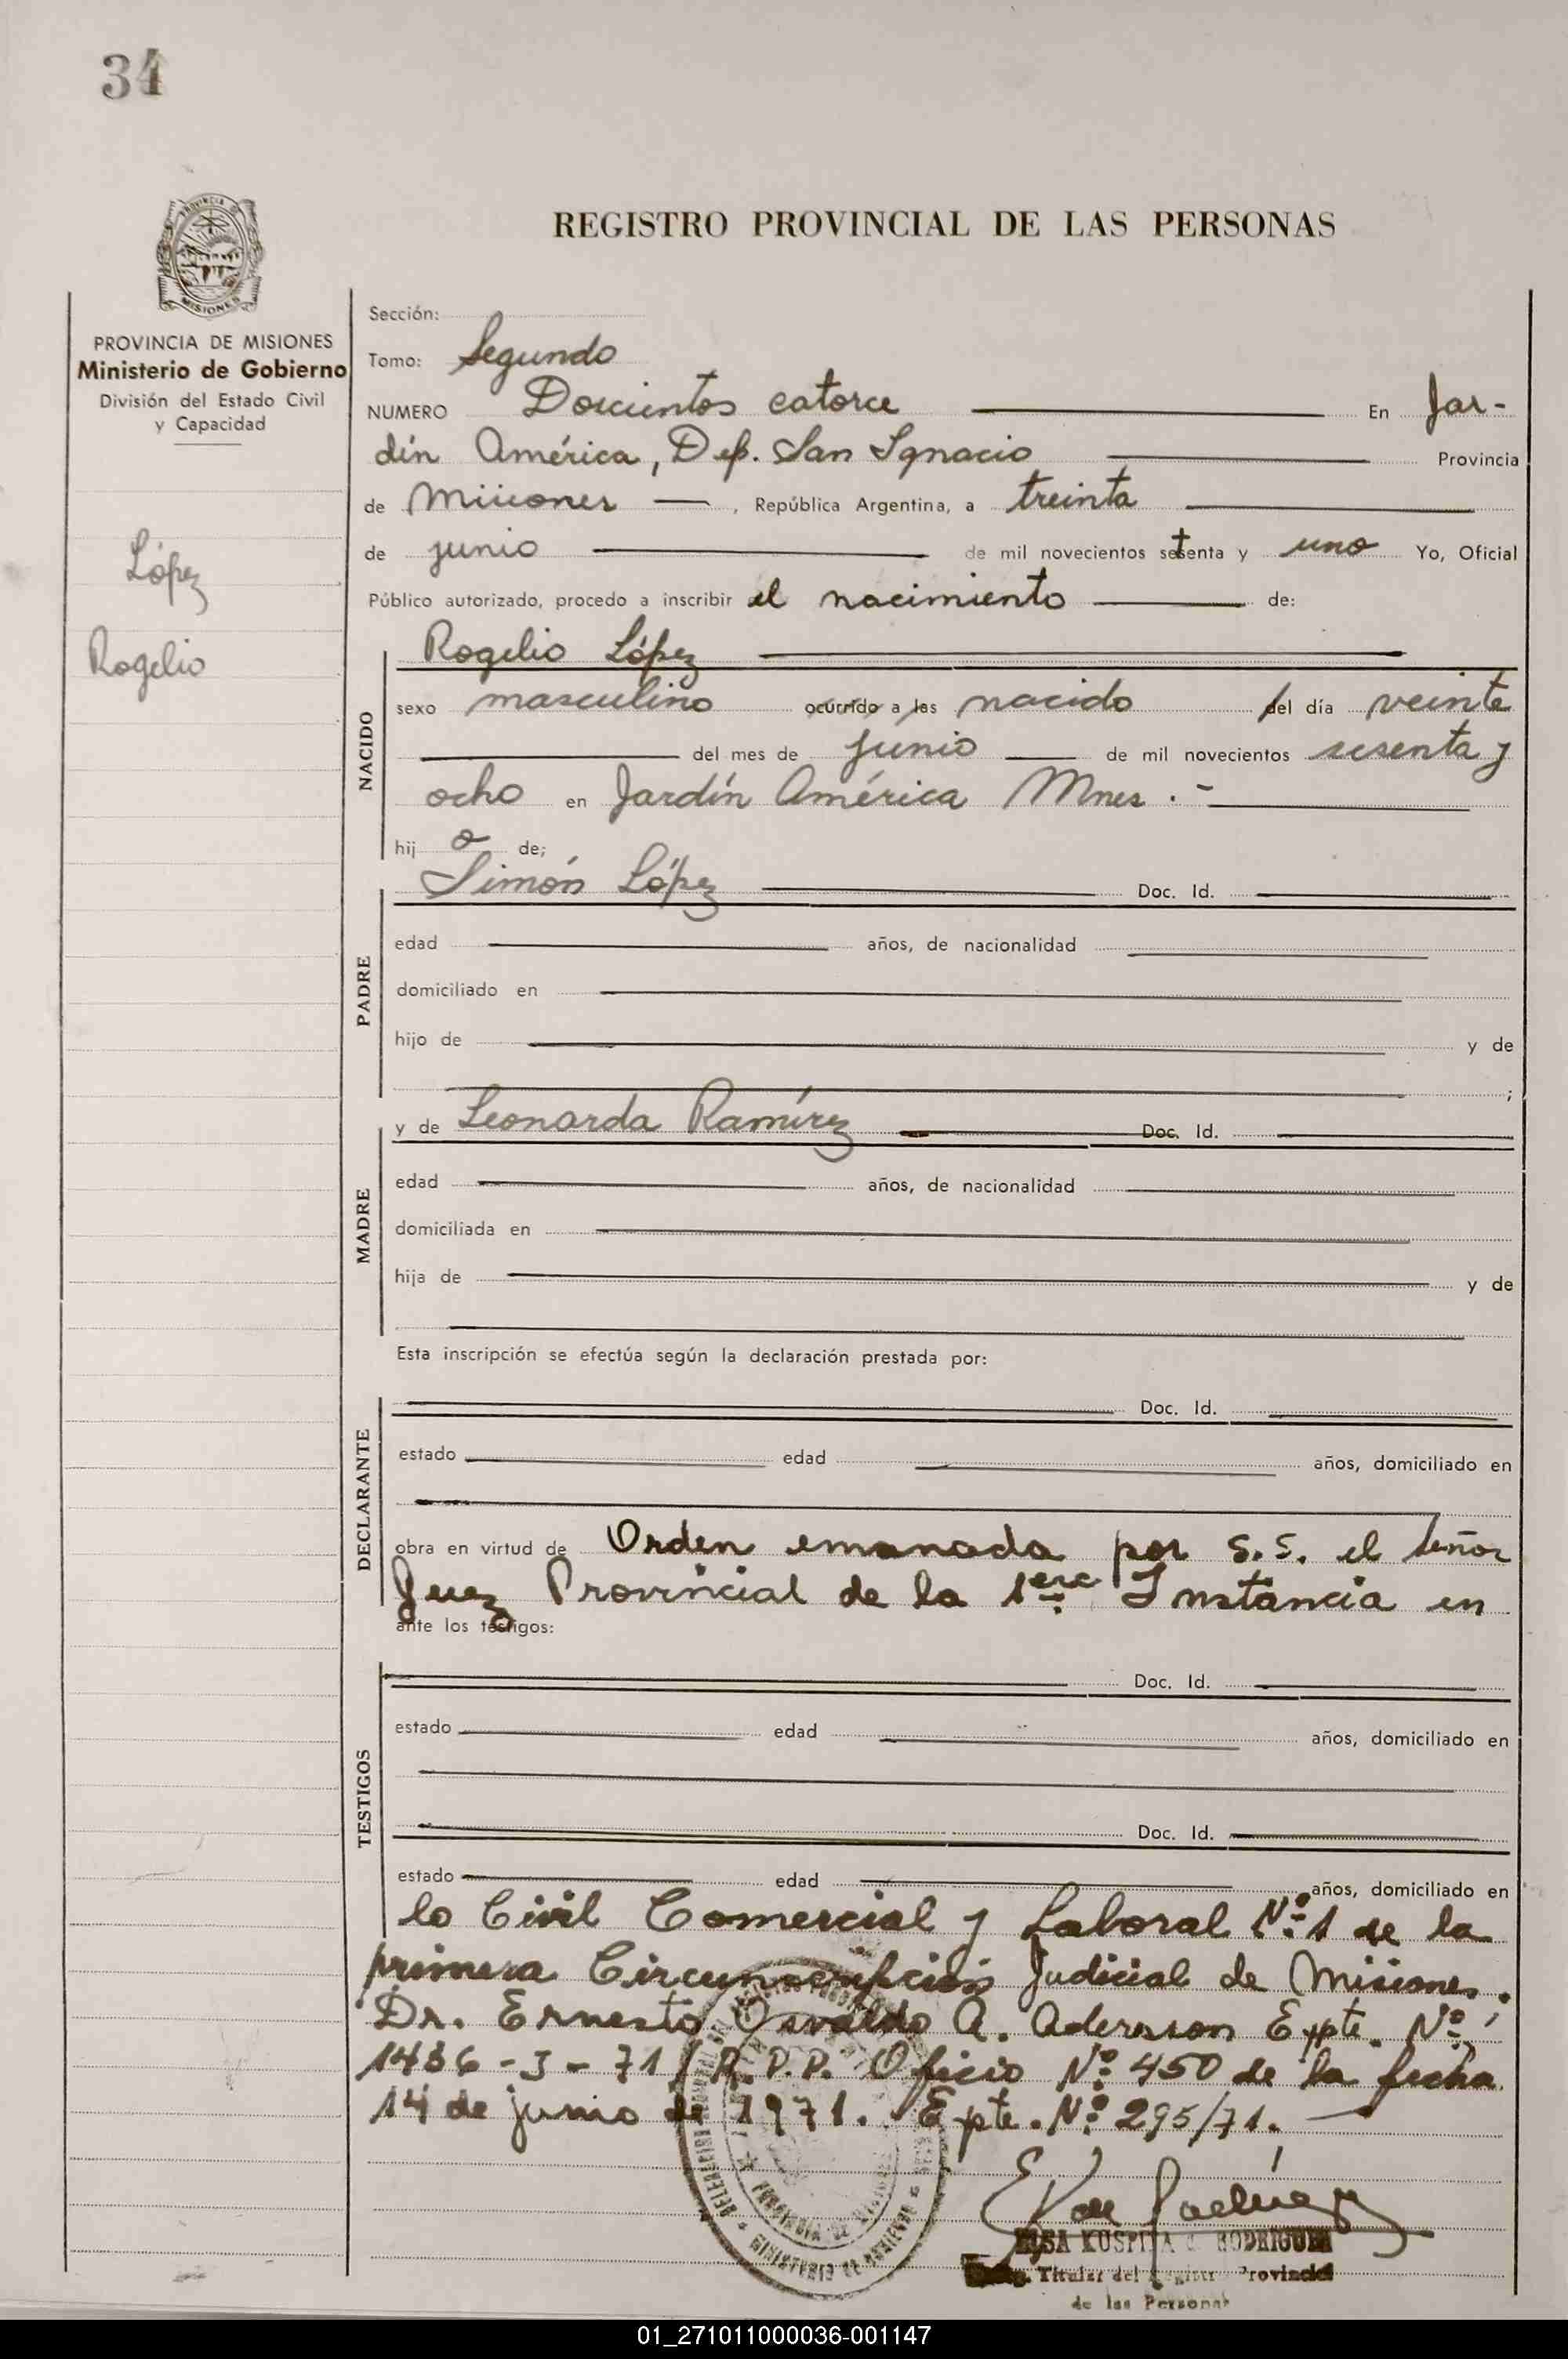 34
PROVINCIA
MISIONES
REGISTRO PROVINCIAL DE LAS PERSONAS
PROVINCIA DE MISIONES
Ministerio de Gobierno
División del Estado Civil
y Capacidad
López
Rogelio
Sección:
Tomo: Segundo
NUMERO Doscientos catorce En Jar-
dín América, Dep. San Ignacio Provincia
de Misiones —, República Argentina, a treinta
de junio de mil novecientos setenta y uno Yo, Oficial
Público autorizado, procedo a inscribir el nacimiento de:
NACIDO
Rogelio López
sexo masculino ocurrido a las nacido del día veinte
del mes de junio de mil novecientos sesenta y
ocho en Jardín América Mnes. -
hij o de;
PADRE
Simón López Doc. Id.
edad años, de nacionalidad
domiciliado en
hijo de y de
;
MADRE
y de Leonarda Ramírez Doc. Id.
edad años, de nacionalidad
domiciliada en
hija de y de
Esta inscripción se efectúa según la declaración prestada por:
DECLARANTE
Doc. Id.
estado edad años, domiciliado en
obra en virtud de Orden emanada por S.S. el Señor
Juez Provincial de la 1era Instancia en
ante los testigos:
TESTIGOS
Doc. Id.
estado edad años, domiciliado en
Doc. Id.
estado edad años, domiciliado en
lo Civil Comercial y Laboral Nº 1 de la
primera Circunscripción Judicial de Misiones.
Dr. Ernesto Osvaldo A. Adersson Expte. Nº
1486-J-71/R.P.P. Oficio Nº 450 de la fecha
14 de junio de 1971. Expte. Nº 295/71.
RODRIGUEZ
Titular del Registro Provincial
de las Personas
01_271011000036-001147